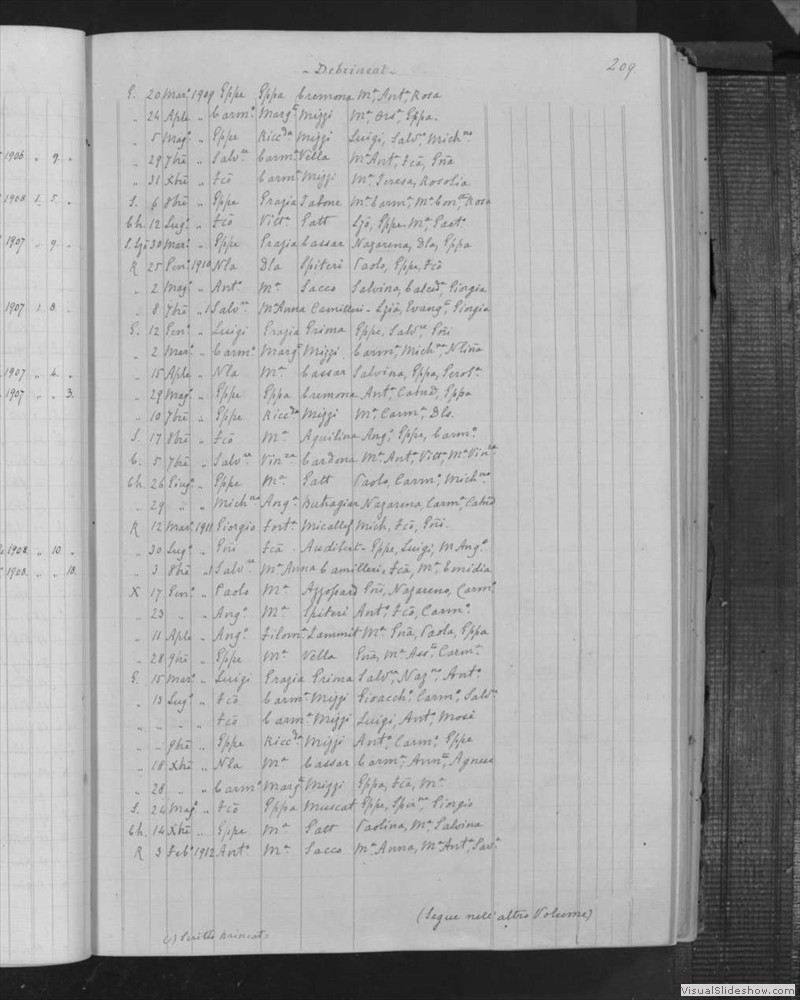 - Debrincat -
209
G. 20 Marzo 1909 Gppe Gppa Cremona Ma, Anta, Rosa
„ 24 Aple „ Carmo Marga Mizzi Ma, Gppa.
„ 5 Mago „ Gppe Riccda Mizzi Luigi, Salvre, Michne
„ 29 7bre „ Salvre Carma Vella Ma Anta, Fca, Gna
„ 31 Xbre „ Fco Carma Mizzi Ma Teresa, Rosolia
S. 6 8bre „ Gppe Grazia Tabone Ma Carma, Ma Conca, Rosa
Ch. 12 Lugo „ Fco Vitta Gatt Gppe, Ma
30 Maro „ Gppe Grazia Cassar Nazarena, Dla, Gppa
R 25 Geno 1910 Nla Dla Spiteri Paolo, Gppe, Fco
„ 2 Mago „ Anto Ma Sacco Salvina, Giorgia
„ 8 7bre „ 1 Salvre Ma Anna Camilleri Giorgia
G. 12 Geno „ Luigi Grazia Grima Gppe, Salvre, Gni
„ 2 Maro „ Carmo Marga Mizzi Carma, Michne
„ 15 Aple „ Nla Ma Cassar Salvina, Gppa
„ 29 Mago „ Gppe Gppa Cremona Anta, Catnd, Gppa
„ 10 7bre „ Gppe Riccda Mizzi Ma, Carma, Dla.
S. 17 8bre „ Fco Ma Aquilina Ango, Gppe, Carmo
C. 5 7bre „ Salvre Vinza Cardona Ma Anta, Vitta, Ma Vinza
Ch. 26 Giugo „ Gppe Ma Gatt Paolo, Carmo, Michne
„ 29 „ „ Michne Anga Buttagiar Nazarena, Carma, Catnd
R 12 Maro 1911 Giorgio Forta Micallef Mich, Fco, Gni.
„ 30 Lugo „ Gni Fca Audibert Gppe, Luigi, M Ango
„ 3 8bre „ 1 Salvre Ma Anna Camilleri Fca, Ma, Emidia
X 17 Geno „ Paolo Ma Azzopard Gna, Nazareno, Carmo
„ 23 „ „ Ango Ma Spiteri Anto, Fco, Carmo
„ 11 Aple „ Ango Filoma Zammit Ma Gna, Paola, Gppa
„ 28 9bre „ Gppe Ma Vella Gna, Ma Assa, Carma
G. 15 Maro „ Luigi Grazia Grima Salvre, Nazno, Anto
„ 13 Lugo „ Fco Carma Mizzi Gioaccho, Carmo, Salvre
„ „ „ „ Fco Carma Mizzi Luigi, Anto, Mosè
„ - 9bre „ Gppe Riccda Mizzi Anto, Carmo, Gppe
„ 18 Xbre „ Nla Ma Cassar Carma, Annta, Agnese
„ 28 „ „ Carmo Marga Mizzi Gppa, Fca, Ma
S. 24 Mago „ Fco Gppa Muscat Gppe, Giorgio
Ch. 14 Xbre „ Gppe Ma Gatt Paolina, Ma, Salvina
R 3 Febo 1912 Anto Ma Sacco Ma Anna, Ma Anta
1906 „ 9 „
1908 1 5 „
1907 „ 9 „
1907 1 8 „
1907 „ 4 „
1907 „ „ 3.
1908 „ 10 „
1908 „ „ 18.
(Segue nell'altro Volume)
(1) Scritto Brincat
VisualSlideshow.com